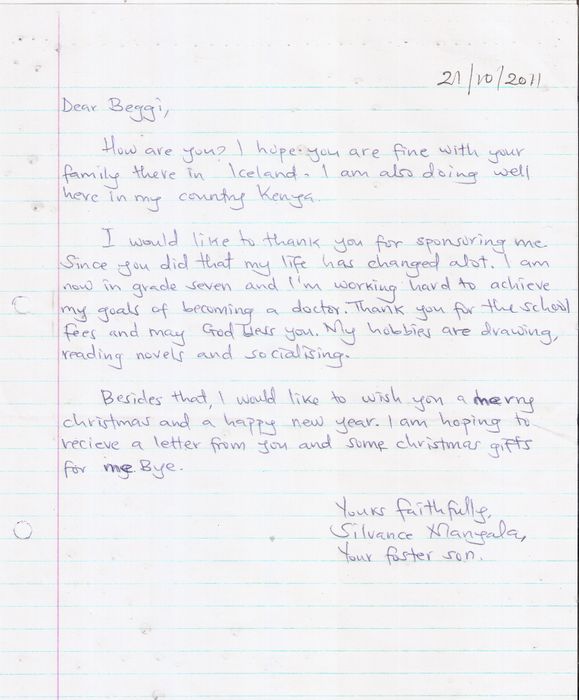 21/10/2011
Dear Beggi,
How are you? I hope you are fine with your
family there in Iceland. I am also doing well
here in my country Kenya.
I would like to thank you for sponsoring me
Since you did that my life has changed alot. I am
now in grade seven and I'm working hard to achieve
my goals of becoming a doctor. Thank you for the school
fees and may God bless you. My hobbies are drawing,
reading novels and socialising.
Besides that, I would like to wish you a merry
christmas and a happy new year. I am hoping to
recieve a letter from you and some christmas gifts
for me. Bye.
Yours faithfully,
Silvance Manyala,
Your foster son.